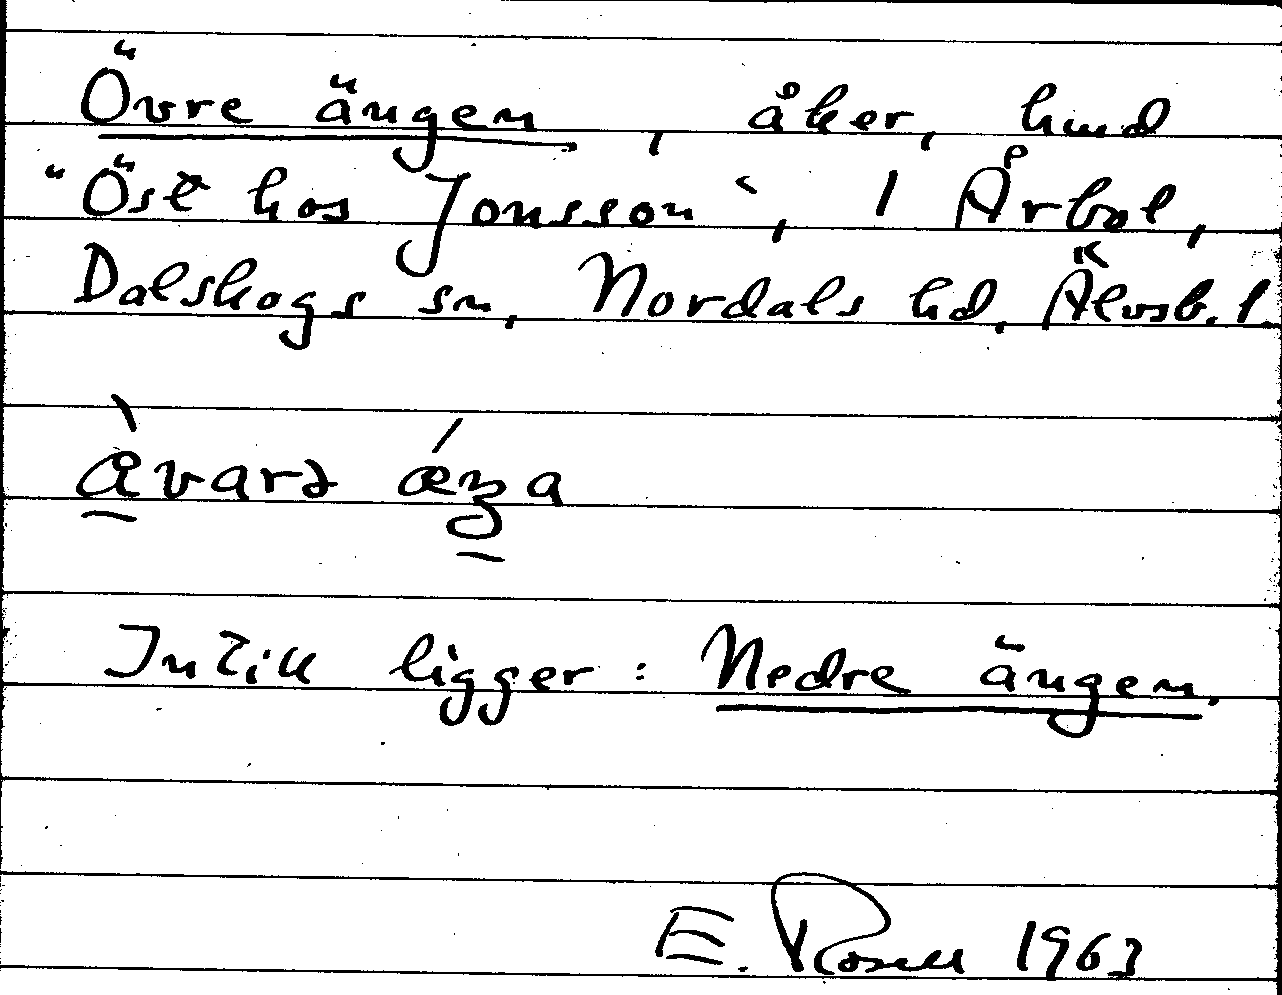 Övre ängen, åker, hmd
"Öst hos Jonsson", 1 Årbol,
Dalskogs sn, Nordals hd, Älvsb. l.
Intill ligger: Nedre ängen.
E. Rosell 1963